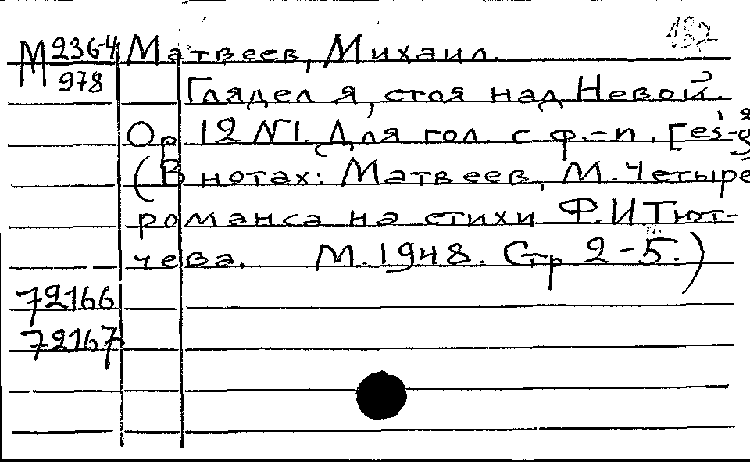 132
М 2364/978 Матвеев, Михаил.
Глядел я, стоя над Невой.
Ор 12 N1. Для гол. с ф.-п. [es¹-g²
(В нотах: Матвеев, М. Четыре
романса на стихи Ф.И Тют-
чева. М. 1948. Стр 2-5.)
72166
72167